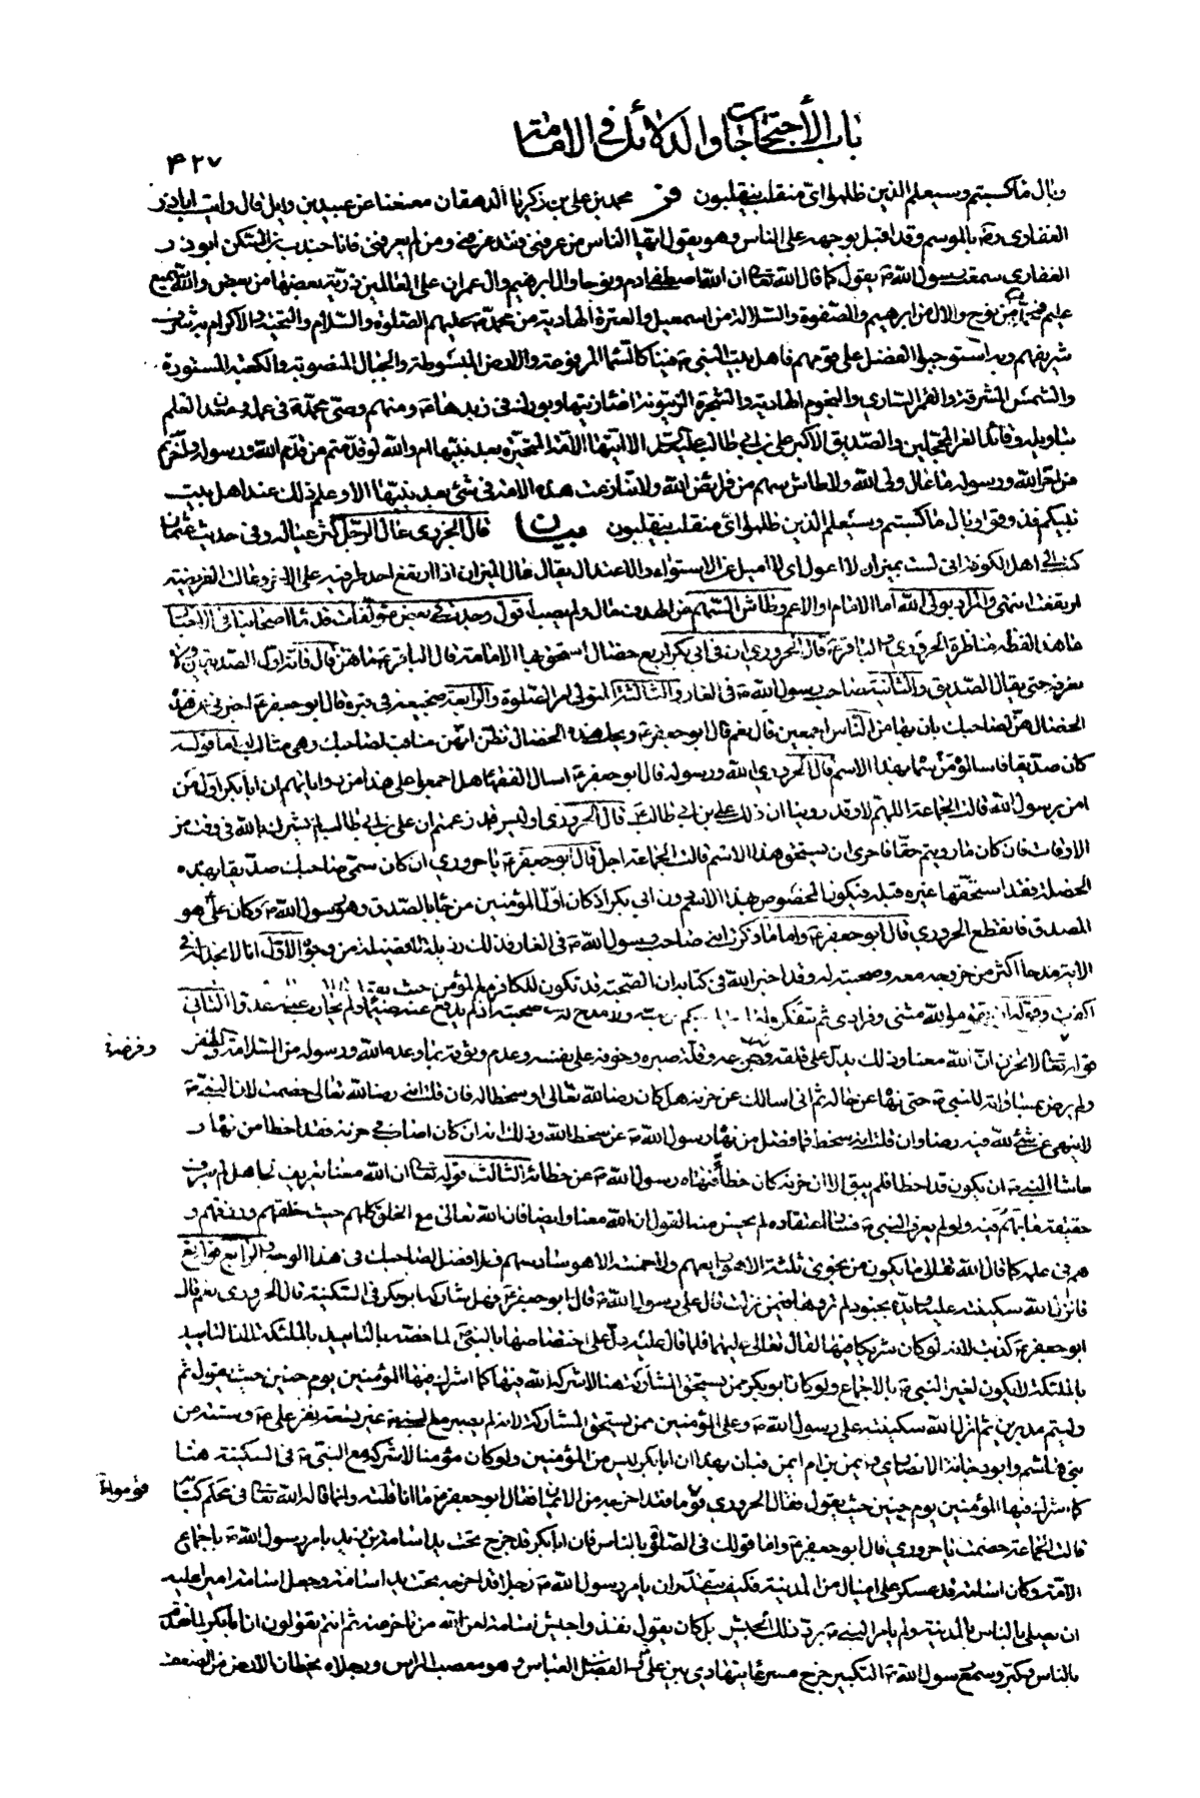 باب الأحتجاجات والدلائل في الامامة
۴۲۷
وبال ما كسبتم وسيعلم الذين ظلموا اي منقلب ينقلبون فر محمد بن علي بن زكريا الدهقان معنعنا عن عبيد بن وايل قال رايت اباذر
الغفاري ره بالموسم وقد اقبل بوجهه على الناس وهو يقول ايها الناس من عرفني فقد عرفني ومن لم يعرفني فانا جندب بن السكن ابو ذر
الغفاري سمعت رسول الله ص يقول كما قال الله تعالى ان الله اصطفى ادم ونوحا وال ابرهيم وال عمران على العالمين ذرية بعضها من بعض والله سميع
عليم فمحمد من نوح والال من ابرهيم والصفوة والسلالة من اسمعيل والعترة الهادية من محمد عليهم الصلوة والسلام والتحية والاكرام به شرف
شريفهم وبه استوجبوا الفضل على قومهم فاهل بيت النبي ص فينا كالسماء المرفوعة والارض المبسوطة والجبال المنصوبة والكعبة المستورة
والشمس المشرقة والقمر الساري والنجوم الهادية والشجرة الزيتونة اضاء زيتها وبورك في زبدها ومنهم وصي محمد في علمه ومعدن العلم
بتاويله وقائد الغر المحجلين والصديق الاكبر علي بن ابي طالب الا ايتها الامة المتحيرة بعد نبيها ام والله لو قدمتم من قدم الله ورسوله واخرتم
من اخر الله ورسوله ما عال ولي الله ولا طاش سهم من فرائض الله ولا تنازعت هذه الامة في شئ بعد نبيها الا وعلم ذلك عند اهل بيت
نبيكم فذوقوا وبال ما كسبتم وسيعلم الذين ظلموا اي منقلب ينقلبون بيان قال الجزري عال الرجل كثر عياله وفي حديث عثمان
كتب الى اهل الكوفة اني لست بميزان لا اعول اي لا اميل عن الاستواء والاعتدال يقال عال الميزان اذا ارتفع احد طرفيه على الاخر وعالت الفريضة
ارتفعت انتهى والمراد بولي الله اما الامام او الاعم وطاش السهم عن الهدف مال ولم يصب اقول وجدت في بعض مؤلفات قدماء اصحابنا في الاخبار
ما هذا لفظه مناظرة الحروري والباقر ع قال الحروري ان في ابي بكر اربع خصال استحق بها الامامة قال الباقر ع ما هن قال فانه اول الصديقين ولا
نعرفه حتى يقال الصديق والثانية صاحب رسول الله ص في الغار والثالثة المتولي امر الصلوة والرابعة ضجيعه في قبره قال ابو جعفر ع اخبرني عن هذه
الخصال هن لصاحبك بان بها من الناس اجمعين قال نعم قال ابو جعفر ع ويحك هذه الخصال تظن انهن مناقب لصاحبك وهي مثالب له اما قوله
كان صديقا فاسالوه من سماه بهذا الاسم قال الحروري الله ورسوله قال ابو جعفر ع اسال الفقهاء هل اجمعوا على هذا من رواياتهم ان ابا بكر اول من
امن برسول الله قالت الجماعة اللهم لا وقد روينا ان ذلك علي بن ابي طالب قال الحروري اوليس قد زعمتم ان علي بن ابي طالب لم يشرك بالله في وقت من
الاوقات فان كان ما رويتم حقا فاحرى ان يستحق هذا الاسم قالت الجماعة اجل قال ابو جعفر ع يا حروري ان كان سمي صاحبك صديقا بهذه
الخصلة فقد استحقها غيره قبله فيكون المخصوص بهذا الاسم دون ابي بكر اذ كان اول المؤمنين من جاء بالصدق وهو رسول الله ص وكان علي هو
المصدق فانقطع الحروري قال ابو جعفر ع واما ما ذكرت انه صاحب رسول الله ص في الغار فذلك رذيلة لا فضيلة من وجوه الاول انا لا نجد له في
الاية مدحا اكثر من خروجه معه وصحبته له وقد اخبر الله في كتابه ان الصحبة قد تكون للكافر مع المؤمن حيث يقول
ان تقوموا لله مثنى وفرادى ثم تتفكروا ولا مدح له في صحبته اذ لم يدفع عنه ضيما ولم يحارب عنه عدوا الثاني
قوله تعالى لا تحزن ان الله معنا وذلك يدل على قلقه وضرعه وقلة صبره وخوفه على نفسه وعدم وثوقه بما وعده الله ورسوله من السلامة والظفر
ولم يرض بمساواته للنبي ص حتى نهاه عن حاله ثم اني اسالك عن حزنه هل كان رضا لله تعالى او سخطا له فان قلت انه رضا لله تعالى خصمت لان النبي ص
لا ينهى عن شئ لله فيه رضا وان قلت انه سخط فما فضل من نهاه رسول الله ص عن سخط الله وذلك انه ان كان اصاب في حزنه فقد اخطا من نهاه
حاشا النبي ص ان يكون قد اخطا فلم يبق الا ان حزنه كان خطأ فنهاه رسول الله ص عن خطائه الثالث قوله تعالى ان الله معنا تعريف لجاهل لم يعرف
حقيقة ما هم فيه ولو لم يعرف النبي ص فساد اعتقاده لم يحسن منه القول ان الله معنا وايضا فان الله تعالى مع الخلق كلهم حيث خلقهم ورزقهم و
هم في علمه كما قال الله تعالى ما يكون من نجوى ثلثة الا هو رابعهم ولا خمسة الا هو سادسهم فلا فضل لصاحبك في هذا الوجه والرابع قوله تع
فانزل الله سكينته عليه وايده بجنود لم تروها فيمن نزلت قال على رسول الله ص قال ابو جعفر ع فهل شاركه ابو بكر في السكينة قال الحروري نعم قال
ابو جعفر ع كذبت لانه لو كان شريكا فيها لقال تعالى عليهما فلما قال عليه دل على اختصاصها بالنبي ص لما خصه بالتاييد بالملئكة لان التاييد
بالملئكة لا يكون لغير النبي ص بالاجماع ولو كان ابو بكر ممن يستحق المشاركة هنا لاشركه الله فيها كما اشرك فيها المؤمنين يوم حنين حيث يقول ثم
وليتم مدبرين ثم انزل الله سكينته على رسول الله ص وعلى المؤمنين ممن يستحق المشاركة لانه لم يصبر مع النبي ص غير تسعة نفر علي ع وستة من
بني هاشم وابو دجانة الانصاري وايمن بن ام ايمن فبان بهذا ان ابا بكر ليس من المؤمنين ولو كان مؤمنا لاشركه مع النبي ص في السكينة هنا
كما اشرك فيها المؤمنين يوم حنين حيث يقول فقال الحروري قوموا فقد اخرجه من الايمان فقال ابو جعفر ع ما انا قلته وانما قاله الله تعالى في محكم كتابه
قالت الجماعة خصمت يا حروري قال ابو جعفر ع واما قولك في الصلوة بالناس فان ابا بكر قد خرج تحت يد اسامة بن زيد بامر رسول الله ص باجماع
الامة وكان اسامة قد عسكر على اميال من المدينة فكيف يتقدر ان يامر رسول الله ص رجلا قد اخرجه تحت يد اسامة وجعل اسامة اميرا عليه
ان يصلي بالناس بالمدينة ولم يامر النبي ص برد ذلك الجيش بل كان يقول نفذوا جيش اسامة لعن الله من تاخر عنه ثم انتم تقولون ان ابا بكر لما تقدم
بالناس وكبر وسمع رسول الله ص التكبير خرج مسرعا يتهادى بين علي والفضل بن العباس وهو معصب الراس ورجلاه يخطان الارض من الضعف